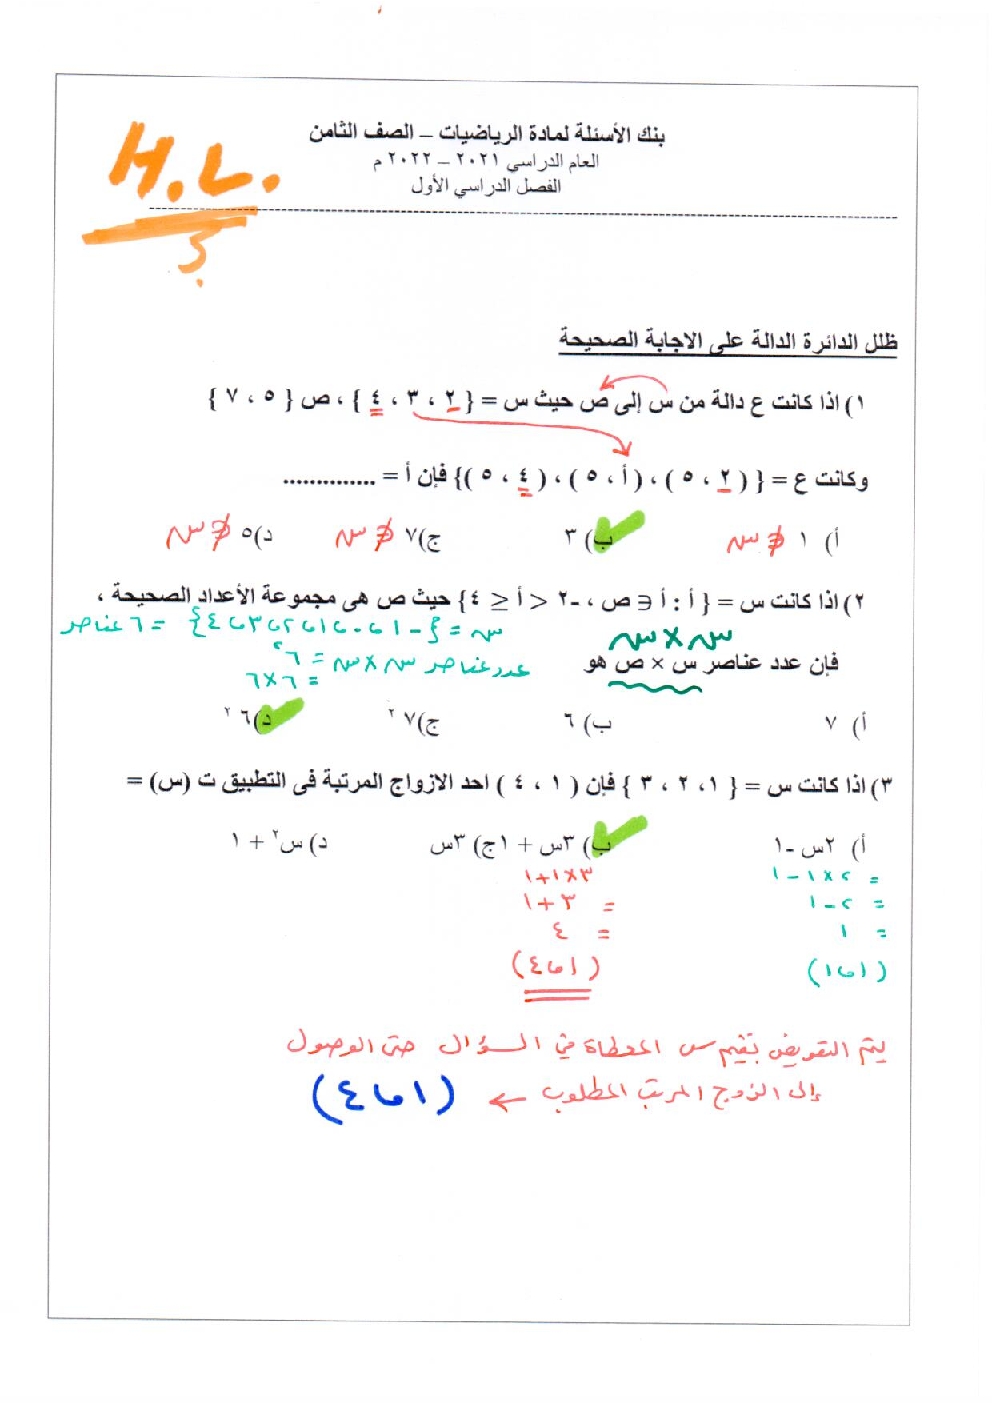 بنك الأسئلة لمادة الرياضيات – الصف الثامن
العام الدراسي ٢٠٢١ – ٢٠٢٢ م
الفصل الدراسي الأول
H.L.
ظلل الدائرة الدالة على الاجابة الصحيحة
١) اذا كانت ع دالة من س إلى ص حيث س = { ٢ ، ٣ ، ٤ } ، ص { ٥ ، ٧ }
وكانت ع = { ( ٢ ، ٥ ) ، ( أ ، ٥ ) ، ( ٤ ، ٥ )} فإن أ = ..............
أ) ١ ∉ س ب) ٣ ج) ٧ ∉ س د) ٥ ∉ س
٢) اذا كانت س = { أ : أ ∈ ص ، -٢ < أ ≤ ٤ } حيث ص هى مجموعة الأعداد الصحيحة ،
س = { -١ ، ٠ ، ١ ، ٢ ، ٣ ، ٤ } = ٦ عناصر
س × س
فإن عدد عناصر س × ص هو
عدد عناصر س × س = ٦²
= ٦ × ٦
أ) ٧ ب) ٦ ج) ٧² د) ٦²
٣) اذا كانت س = { ١، ٢ ، ٣ } فإن ( ١ ، ٤ ) احد الازواج المرتبة فى التطبيق ت (س) =
أ) ٢س -١ ب) ٣س + ١ ج) ٣س د) س² + ١
= ٢ × ١ – ١ ٣ × ١ + ١
= ٢ – ١ = ٣ + ١
= ١ = ٤
( ١ ، ١ ) ( ١ ، ٤ )
يتم التعويض بقيم س المعطاة في السؤال حتى الوصول
إلى الزوج المرتب المطلوب ← ( ١ ، ٤ )